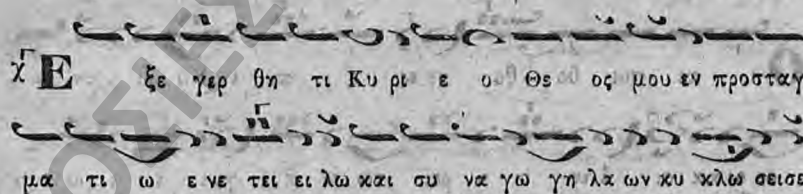 Ε ξε γερ θη τι Κυ ρι ε ο Θε ος μου εν προσταγ
μα τι ω ε νε τει ει λω και συ να γω γη λα ων κυ κλω σει σε